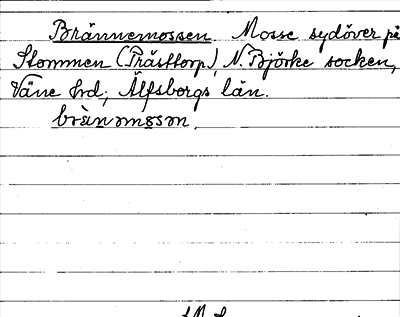 Brännemossen. Mosse sydöver på
Stommen (Prästtorp), N. Björke socken,
Väne hrd; Älfsborgs län.
brànəmɷsən.